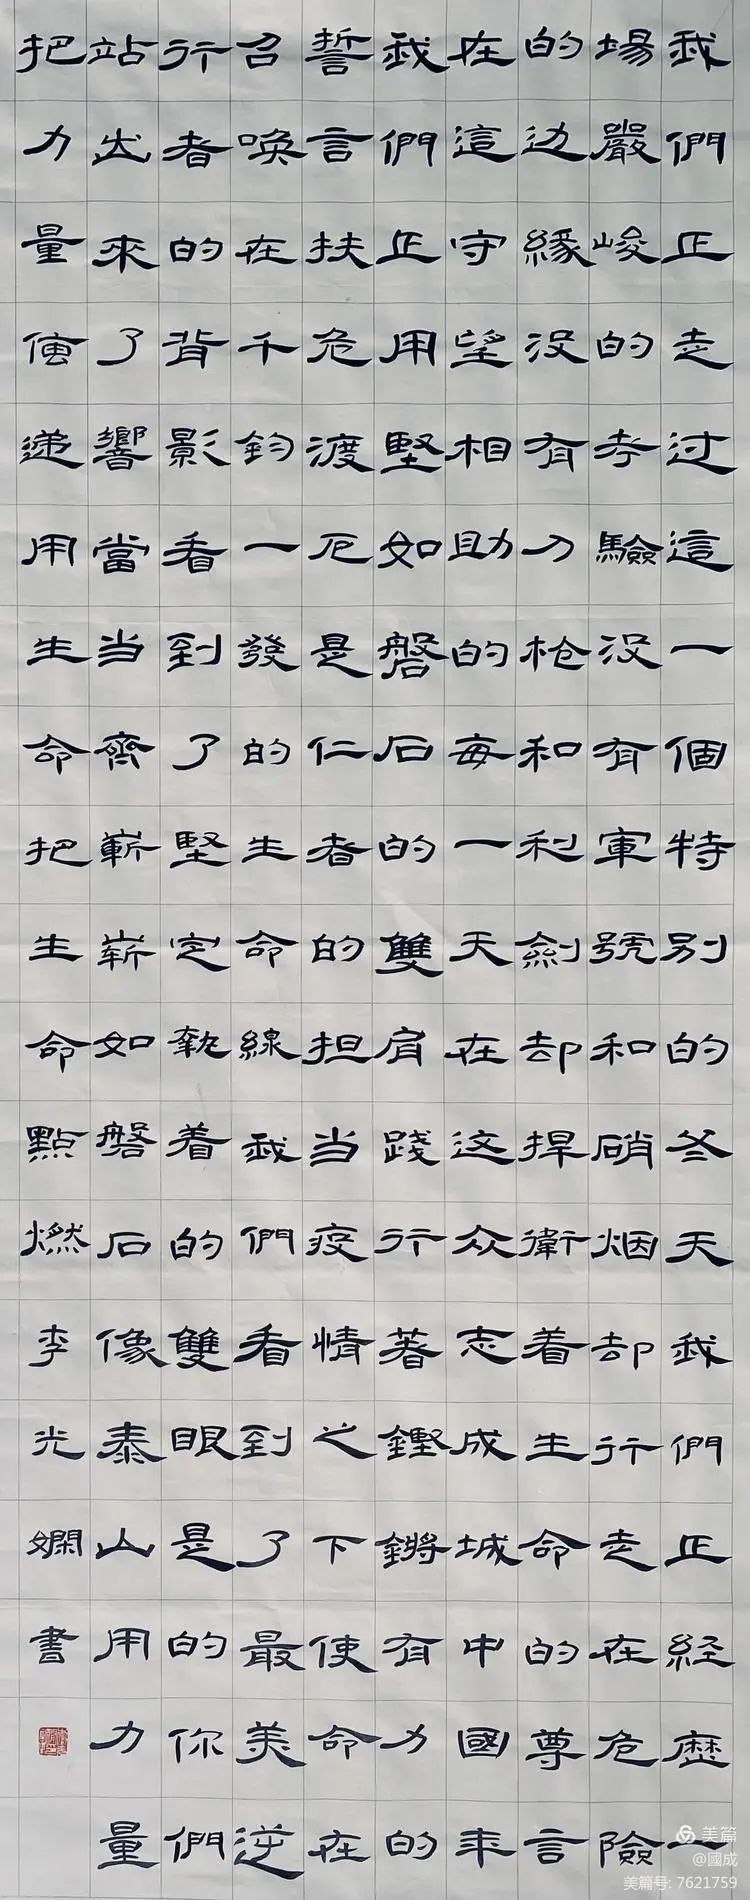 我們正走过這一個特别的冬天我們正經歷一
場嚴峻的考驗没有軍號和硝烟却行走在危險
的边緣没有刀枪和利劍却捍衛着生命的尊言
在這守望相助的每一天在这众志成城中國年
我們正用堅如磐石的雙肩踐行著鏗鏘有力的
誓言扶危渡厄是仁者的担当疫情之下使命在
召唤在千鈞一發的生命線我們看到了最美逆
行者的背影看到了堅定執着的雙眼是的你們
站出來了響當当齊嶄嶄如磐石像泰山用力量
把力量傳递用生命把生命點燃李光嫻書
美篇
@國成
美篇号: 7621759